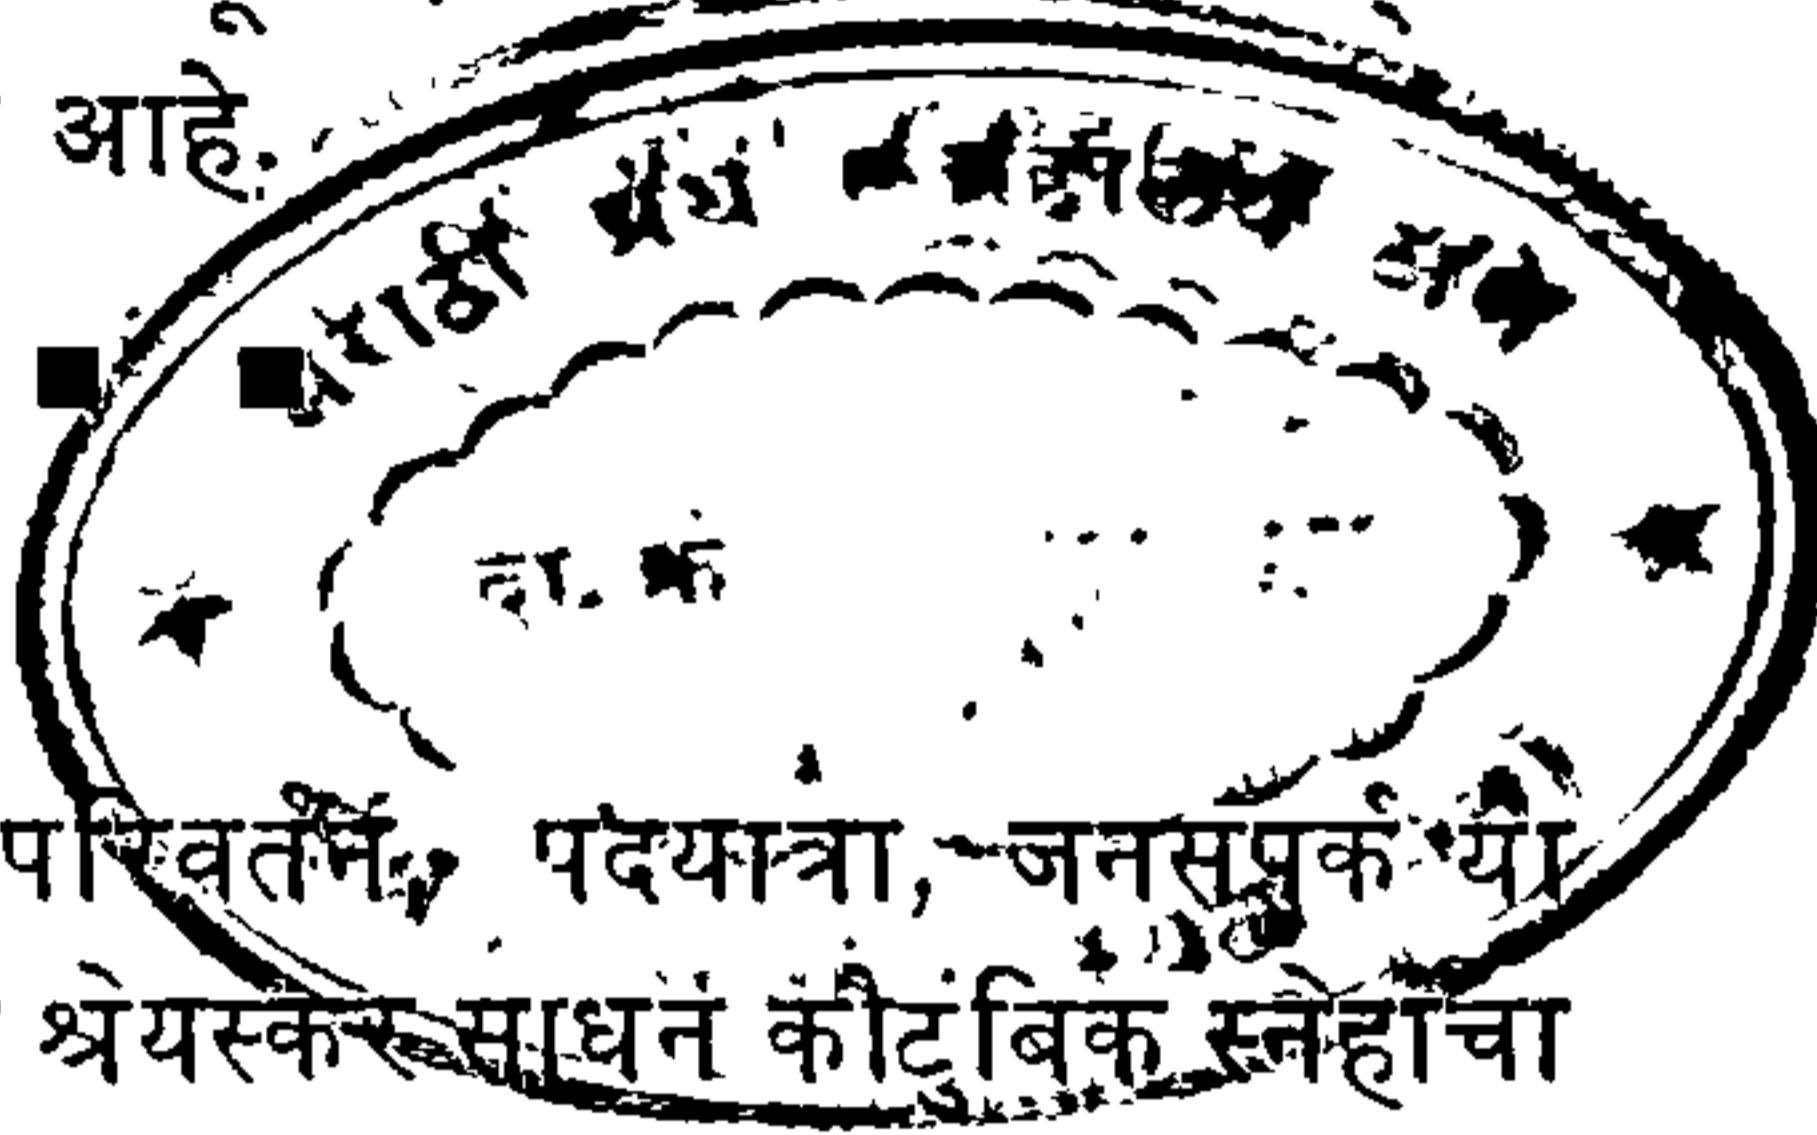 आहे.
मराठी ग्रंथ
दा. क्रं
परिवर्तन, पदयात्रा, जनसंपर्क या
श्रेयस्कर साधनं कौटुंबिक स्नेहाचा